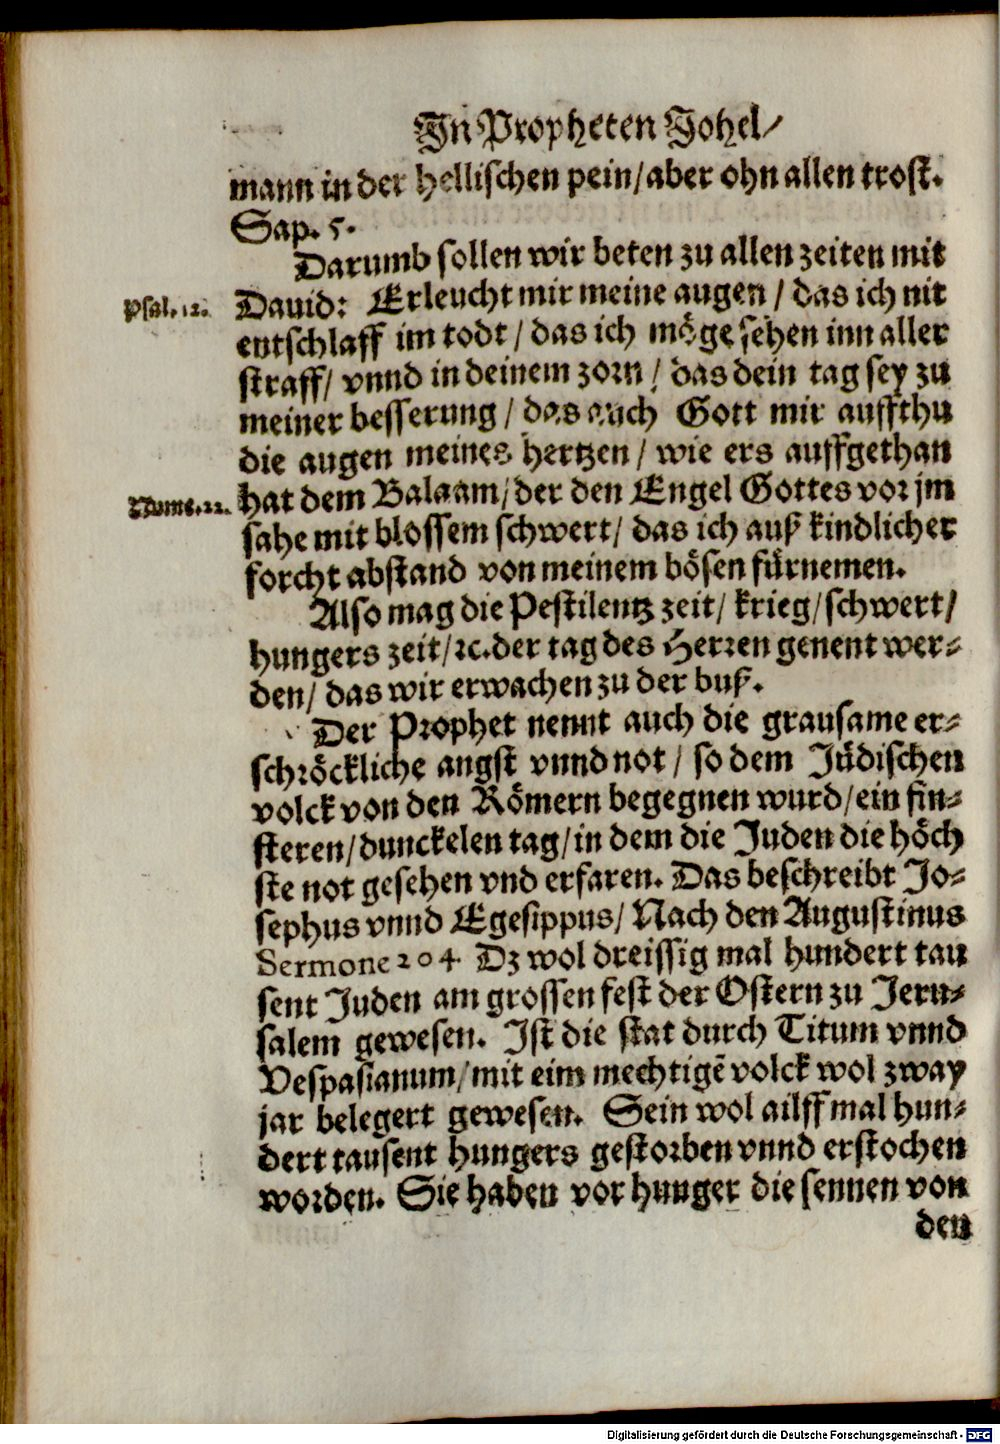 In Propheten Johel/
mann in der hellischen pein/aber ohn allen trost.
Sap. 5.
Darumb sollen wir beten zu allen zeiten mit
Psal. 12.
Dauid: Erleucht mir meine augen / das ich nit
entschlaff im todt / das ich möge sehen inn aller
straff/ vnnd in deinem zorn / das dein tag sey zu
meiner besserung / das auch Gott mir auffthu
die augen meines hertzen / wie ers auffgethan
Nume. 22.
hat dem Balaam/der den Engel Gottes vor jm
sahe mit blossem schwert/ das ich auß kindlicher
forcht abstand von meinem bösen fürnemen.
Also mag die Pestilentz zeit/ krieg/schwert/
hungers zeit/ꝛc.der tag des Herren genent wer-
den/ das wir erwachen zu der buß.
Der Prophet nennt auch die grausame er-
schröckliche angst vnnd not / so dem Jüdischen
volck von den Römern begegnen wurd/ein fin-
steren/dunckelen tag/in dem die Juden die höch
ste not gesehen vnd erfaren. Das beschreibt Jo-
sephus vnnd Egesippus/ Nach den Augustinus
Sermone 204. Dz wol dreissig mal hundert tau
sent Juden am grossen fest der Ostern zu Jeru-
salem gewesen. Ist die stat durch Titum vnnd
Vespasianum/mit eim mechtigē volck wol zway
jar belegert gewesen. Sein wol ailff mal hun-
dert tausent hungers gestorben vnnd erstochen
worden. Sie haben vor hunger die sennen von
den
Digitalisierung gefördert durch die Deutsche Forschungsgemeinschaft - DFG